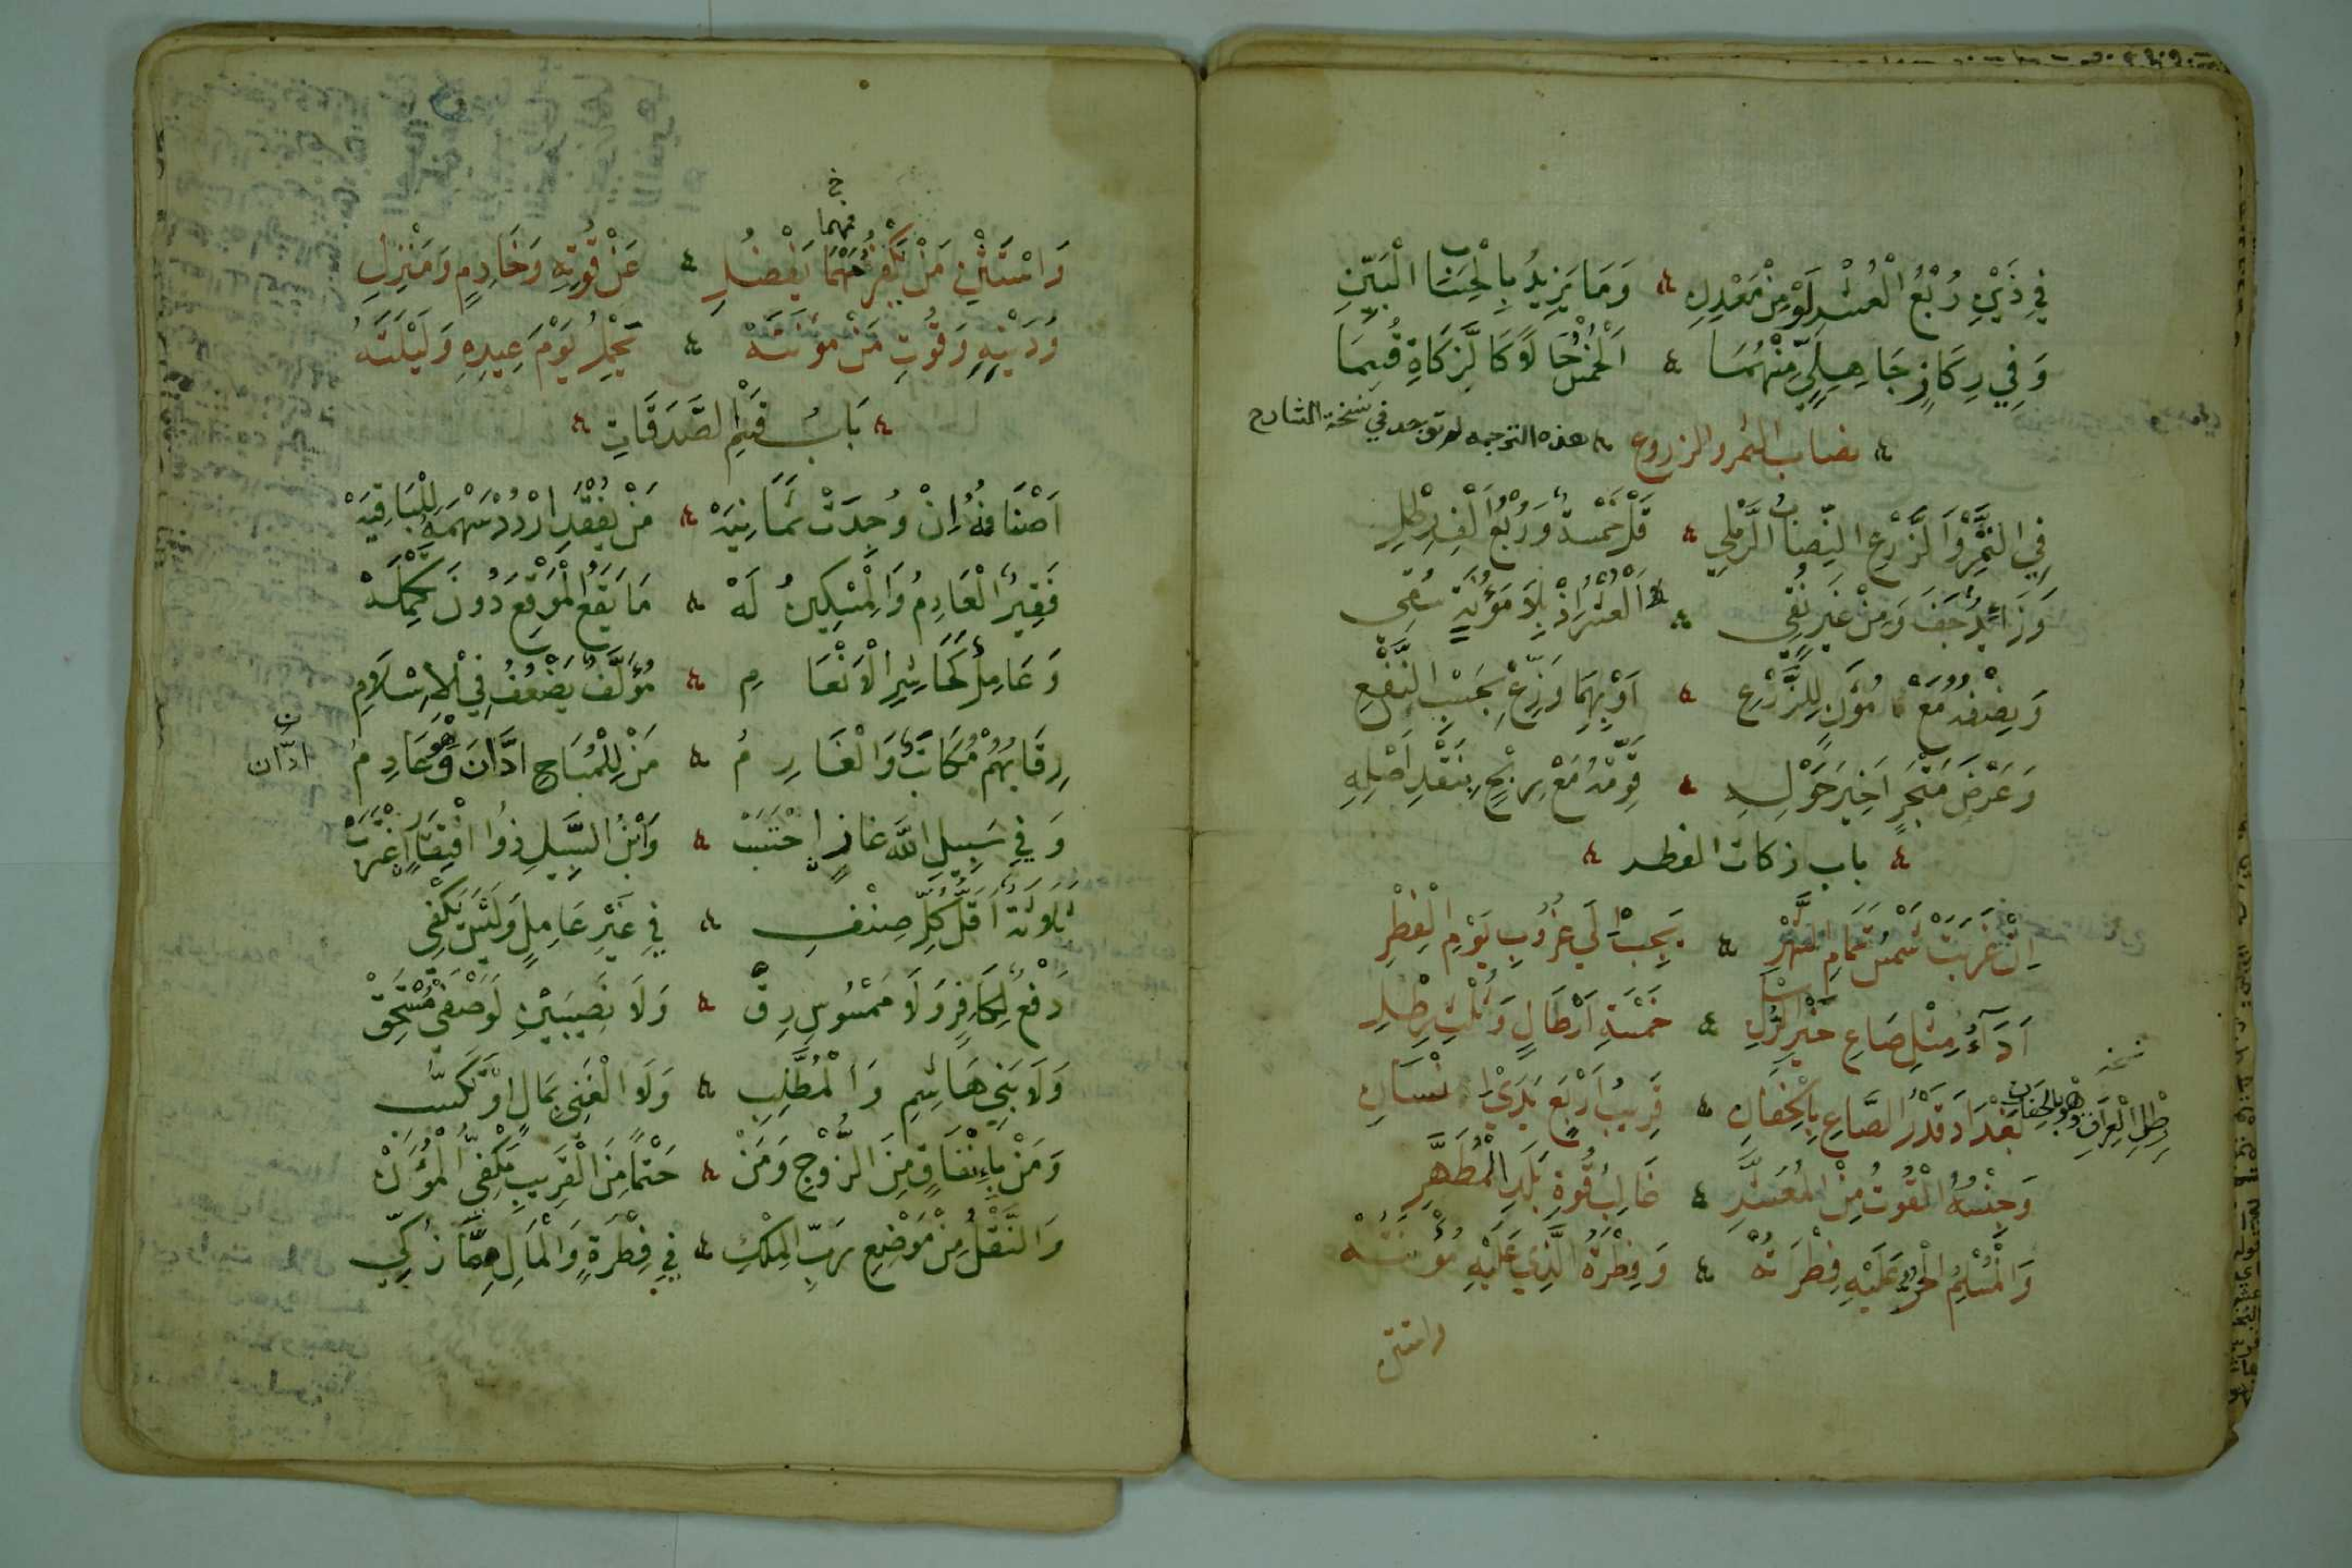 فِي ذَيْنِ رُبْعُ الْعُشْرِ لَوْ مِنْ مَعْدِنِ ؞ وَمَا يَزِيدُ بِالْحِسَابِ الْبَيِّنِ
وَفِي رِكَازٍ جَاهِلِيٍّ مِنْهُمَا ؞ اَلْخُمْسُ حَالًا كَالزَّكَاةِ قُسِمَا
؞ نصاب الثمر والزروع ؞ هذه الترجمه لم توجد في نسخة الشارح
فِي التَّمْرِ وَالزَّرْعِ النِّصَابُ الرَّمْلِي ؞ قُلْ خَمْسَةٌ وَرُبْعُ أَلْفِ رِطْلِ
وَزَائِدٌ جَفَّ وَمِنْ غَيْرِ نُقِي ؞ اَلْعُشْرُ إِذْ بِلَا مَؤُنَةٍ سُقِي
وَنِصْفُهُ مَعْ مُؤَنٍ لِلزَّرْعِ ؞ اَوْ بِهِمَا وَزِّعْ بِحَسَبِ النَّفْعِ
وَعَرْضُ مَتْجَرٍ اَخِيرَ حَوْلِهِ ؞ قَوِّمْهُ مَعْ رِبْحٍ بِنَقْدِ اَصْلِهِ
؞ باب زكات الفطر ؞
اِنْ غَرَبَتْ شَمْسُ تَمَامِ الشَّهْرِ ؞ يَجِبُ اِلَى غُرُوبِ يَوْمِ الْفِطْرِ
اَدَآءُ مِثْلِ صَاعِ خَيْرِ الرُّسْلِ ؞ خَمْسَةِ اَرْطَالٍ وَثُلْثِ رِطْلِ
بَغْدَادَ قَدْرُ الصَّاعِ بِالْحِفَانِ ؞ قَرِيبُ اَرْبَعِ يَدَيْ اِنْسَانِ
نسخه
رِطْلِ الْعِرَاقِ وَهْوَ بِالْحِفَانِ
وَجِنْسُهُ الْقُوتُ مِنَ الْمُعَشَّرِ ؞ غَالِبُ قُوتِ بَلَدِ الْمُطَهَّرِ
وَالْمُسْلِمُ الْحُرُّ عَلَيْهِ فِطْرَتُهْ ؞ وَفِطْرَةُ الَّذِي عَلَيْهِ مُؤْنَتُهْ
واستثن
خ
مهما
وَاسْتَثْنِ مَنْ يَكْفُرُ مَهْمَا يَفْضُلِ ؞ عَنْ قُوتِهِ وَخَادِمٍ وَمَنْزِلِ
وَدَيْنِهِ وَقُوتِ مَنْ مُؤْنَتَهْ ؞ يَحْمِلُ يَوْمَ عِيدِهِ وَلَيْلَتَهْ
؞ بَابُ قَسْمِ الصَّدَقَاتِ ؞
اَصْنَافُهُ اِنْ وُجِدَتْ ثَمَانِيَهْ ؞ مَنْ يُفْقَدِ ارْدُدْ سَهْمَهُ لِلْبَاقِيَهْ
فَقِيرٌ الْعَادِمُ وَالْمِسْكِينُ لَهْ ؞ مَا يَقَعُ الْمَوْقِعَ دُونَ تَكْمِلَهْ
وَعَامِلٌ كَحَاشِرِ الْاَنْعَامِ ؞ مُؤَلَّفٌ يَضْعُفُ فِي الْاِسْلَامِ
رِقَابُهُمْ مُكَاتَبٌ وَالْغَارِمُ ؞ مَنْ لِلْمُبَاحِ ادَّانَ وَهْوَ عَادِمُ
ادّان
وَفِي سَبِيلِ اللهِ غَازٍ اِحْتَسَبْ ؞ وَابْنُ السَّبِيلِ ذُو افْتِقَارٍ اِغْتَرَبْ
ثَلَاثَةٌ اَقَلُّ كُلِّ صِنْفِ ؞ فِي غَيْرِ عَامِلٍ وَلَيْسَ يَكْفِي
دَفْعٌ لِكَافِرٍ وَلَا مَمْسُوسِ رِقّْ ؞ وَلَا نَصِيبَيْنِ لِوَصْفَيْ مُسْتَحِقْ
وَلَا بَنِي هَاشِمِ وَالْمُطَّلِبِ ؞ وَلَا الْغَنِي بِمَالٍ اَوْ تَكَسُّبِ
وَمَنْ بِاِنْفَاقٍ مِنَ الزَّوْجِ وَمَنْ ؞ حَتْمًا مِنَ الْقَرِيبِ مَكْفِيُّ الْمُؤَنْ
وَالنَّقْلُ مِنْ مَوْضِعِ رَبِّ الْمِلْكِ ؞ فِي فِطْرَةٍ وَالْمَالِ مِمَّا زُكِّي